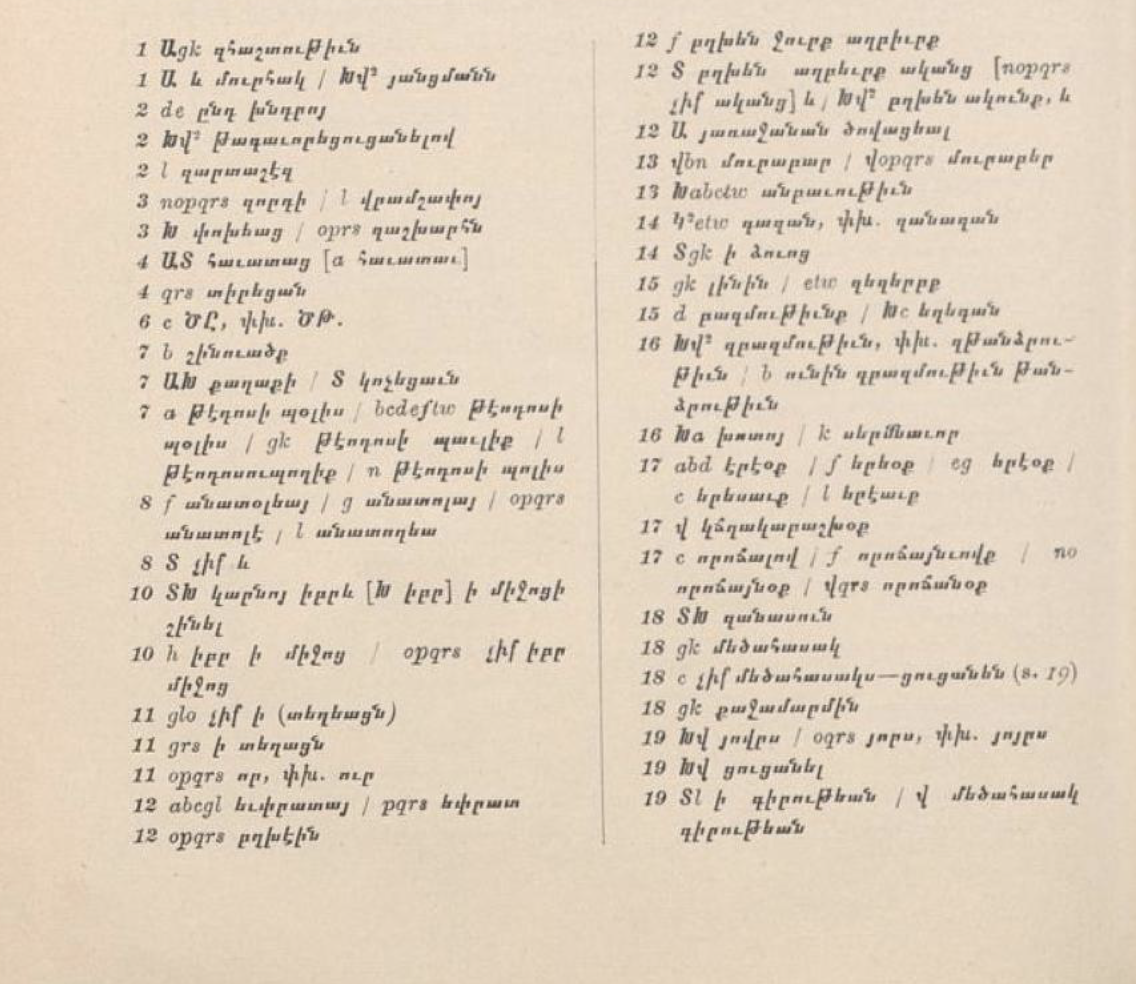 1 Ագk զհաշտութիւն
1 Ա և մուրհակ / Խվ² յանցմանն
2 de ընդ խնդրոյ
2 Խվ² թագաւորեցուցանելով
2 l զարտաշէզ
3 nopqrs զորդի / l վրամշափոյ
3 Խ փոխեաց / oprs զաշխարհն
4 ԱՏ հաւատաց [a հաւատաւ]
4 qrs տիրեցան
6 c ԾԸ, փխ. ԾԹ.
7 b շինուածք
7 ԱԽ քաղաքի / Տ կոչեցաւն
7 a թէդոսի պօլիս / bcdeftw թէոդոսի
պօլիս / gk թէոդոսի պաւլիք / l
թէոդոսուպողիք / n թէոդոսի պոլիս
8 f անատօլեայ / g անատոլայ / opqrs
անատոլէ / l անատողեա
8 Տ չիք և
10 ՏԽ կարնոյ իբրև [Խ իբր] ի միջոցի
շինել
10 h իբր ի միջոց / opqrs չիք իբր
միջոց
11 glo չիք ի (տեղեացն)
11 grs ի տեղացն
11 opqrs որ, փխ. ուր
12 abcgl եւփրատայ / pqrs եփրատ
12 opqrs բղխէին
12 f բղխեն ջուրք աղբիւրք
12 Տ բղխեն աղբեւրք ականց [nopqrs
չիք ականց] և / Խվ² բղխեն ակունք, և
12 Ա յառաջանան ծովացեալ
13 վbn մուրարար / վopqrs մուրաբեր
13 Խabctw անբաւութիւն
14 Կ²etw գազան, փխ. զանազան
14 Տgk ի ձուոց
15 gk լինին / etw զեզերբք
15 d բազմութիւնք / Խc եղեզան
16 Խվ² զբազմութիւն, փխ. զթանձրու-
թիւն / b ունին զբազմութիւն թան-
ձրութիւն
16 Խa խոտոյ / k սերմնաւոր
17 abd էրէօք / f երեօք / eg երէօք /
c երեսաւք / l երէաւք
17 վ կճղակաբաշխօք
17 c որոճալով / f որոճայնուովք / no
որոճայնօք / վqrs որոճանօք
18 ՏԽ զանասուն
18 gk մեծահասակ
18 c չիք մեծահասակս—ցուցանեն (s. 19)
18 gk քաջամարմին
19 Խվ յովրս / oqrs յորս, փխ. յոյրս
19 Խվ ցուցանել
19 Տl ի գիրութեան / վ մեծահասակ
գիրութեան